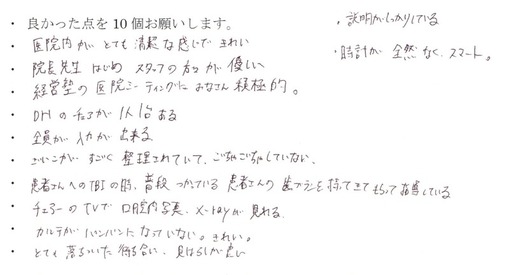 ・ 良かった点を 10 個お願いします。
・ 医院内が とても 清潔な感じで きれい
・ 院長先生 はじめ スタッフの方が 優しい
・ 経営塾の 医院ミーティングに みなさん 積極的。
・ DHの チェアが 1人1台 ある
・ 全員が 入力が 出来る
・ すごく 整理されていて、ごちゃごちゃしていない、
・ 患者さんへのTBIの時、普段 つかっている 患者さんの 歯ブラシを 持ってきて もらって 指導している
・ チェアーの TVで 口腔内写真、X-rayが 見れる。
・ カルテが パンパンに なっていない。きれい。
・ とても 落ちついた 待ち合い、見はらしが 良い
・ 説明が しっかりしている
・ 時計が 全然 なく、スマート。